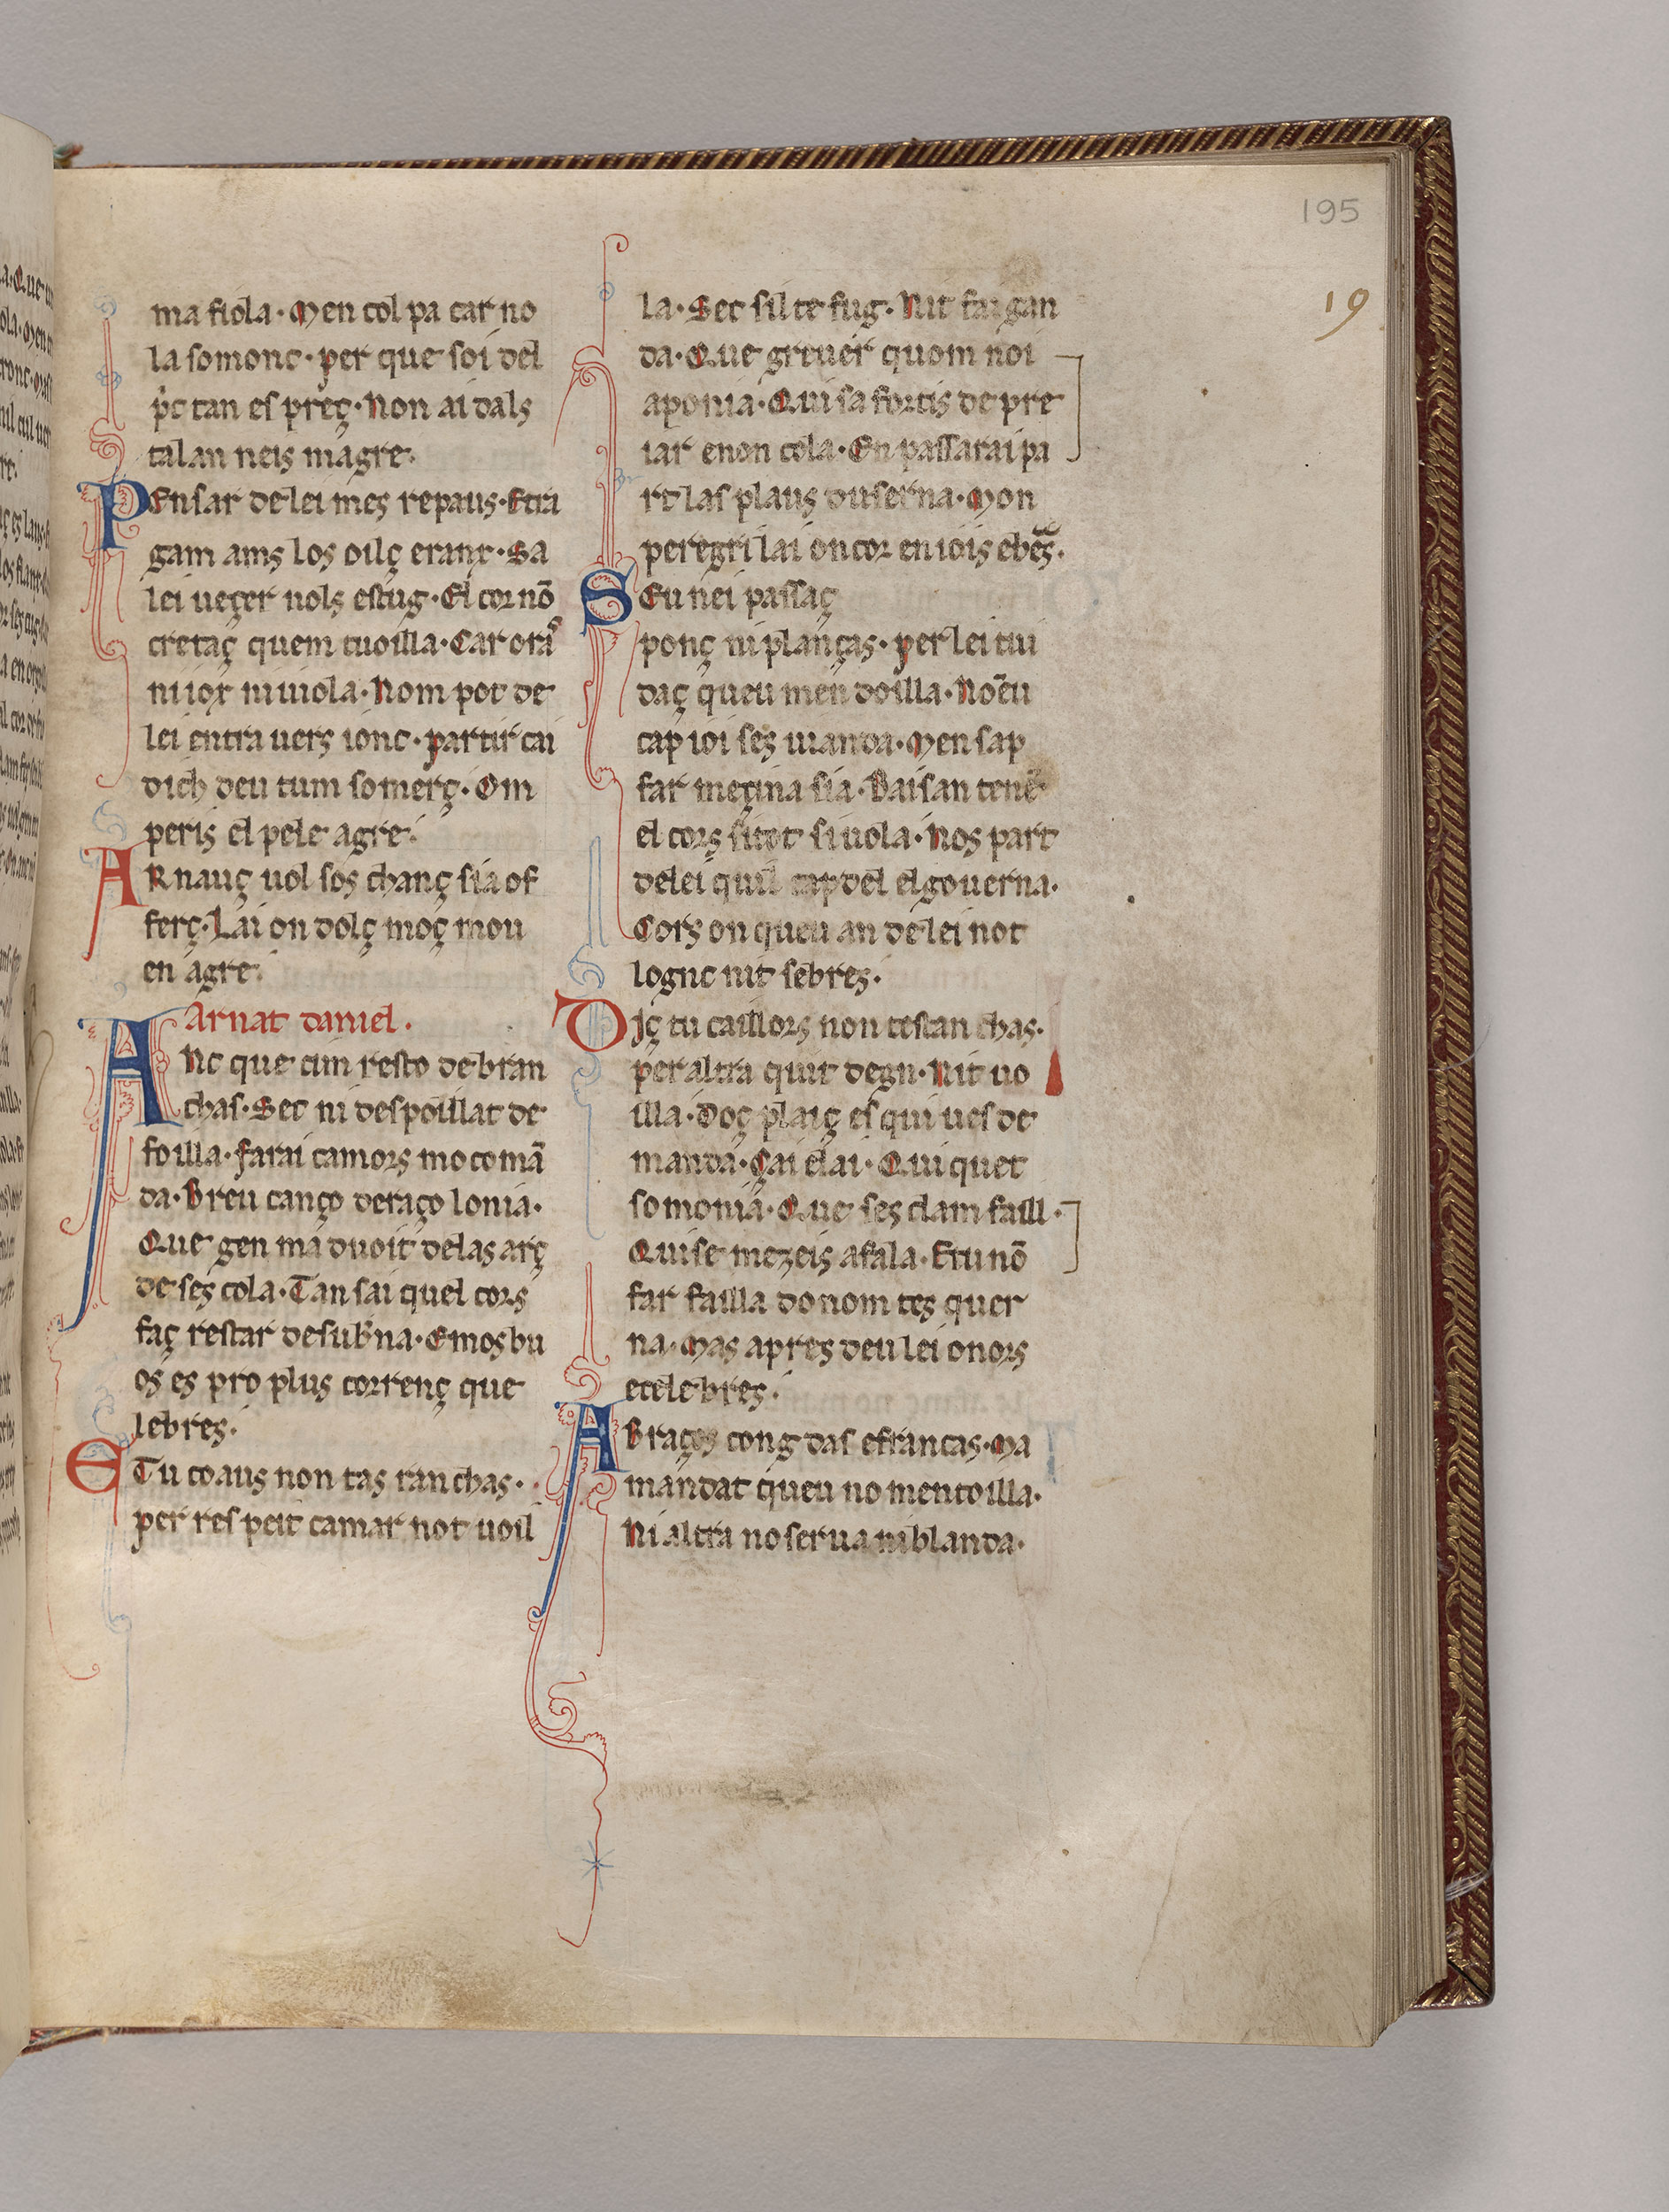 195
19
ma fiola · Men col pa car no
la somonc · per que soi del
p̃c tan es preç · Non ai dals
talan neis magre ·
PEnsar de lei mes repaus · Etra
gam ams los oilç eranc · Sa
lei ueçer nols estug · El cor nō
cretaç quem tuoilla · Car orā
ni iox ni uiola · Nom pot de
lei entra uers ionc · partir cai
dich deu tum somerç · Om
peris el pele agre ·
ARnauç uol sos chanç sia of
ferç · Lai on dolç moç mou
en agre ·
Arnat daniel ·
ANc que cim resto de bran
chas · Sec ni despoillat de
foilla · farai camors mo comā
da · Breu canço deraço lonia ·
Que gen ma duoit de las arç
de ses cola · Tan sai quel cors
faç restar de sub'na · Emos bu
os es pro plus correnç que
lebres ·
ETu coaus non tas ranchas ·
per res peit camar not uoil
la · Sec sil te fug · Nit fai gan
da · Que greuer quom noi
aponia · Qui sa fortis de pre
iar enon cola · En passarai pa
rt las plaus duserna · Mon
peregri lai on cor en iois ebēs ·
SEu nei passaç
ponç ni planças · per lei cui
daç queu men doilla · Noēu
cap ioi ses uianda · Men sap
far meçina sia · Baisan tenē
el cors sitot si uola · Nos part
delei quil capdel el gouerna ·
Cors on queu an de lei not
lognc nit sebres ·
Diç tu caillors non testan chas ·
per altra quit degn · Nit uo
illa · Doç plaiç esqui ues de
manda · Çai elai · Qui quet
somonia · Que ses clam faill ·
Qui se mezeis afala · Etu nō
far failla do nom tes quer
na · Mas apres deu lei onors
ecelebres ·
ABraços cong das efrancas · Ma
mandat queu no mentoilla ·
Ni altra no serua ni blanda ·